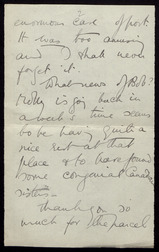 enormous care of post
It was too amusing
and I shall never
forget it.
What news of Bob?
Molly is going back in
a week's time seems
to be having quite a
nice rest at that
place & to have found
some congenial Canadian
sisters —
Thank you so
much for the parcel